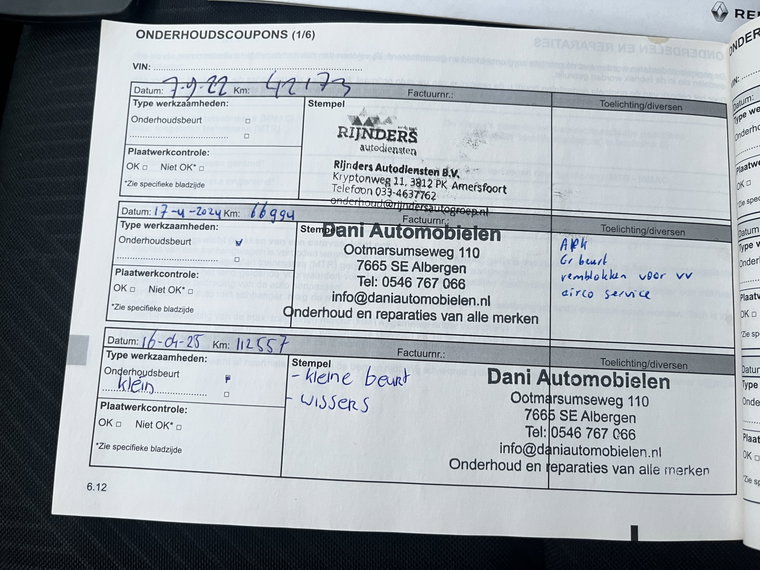 REN
ONDERHOUDSCOUPONS (1/6)
VIN:
Datum: 7-9-22 Km: 42173 Factuurnr.:
Type werkzaamheden:
Onderhoudsbeurt
Plaatwerkcontrole:
OK Niet OK*
*Zie specifieke bladzijde
Stempel
RIJNDERS
autodiensten
Rijnders Autodiensten B.V.
Kryptonweg 11, 3812 PK Amersfoort
Telefoon 033-4637762
onderhoud@rijndersautogroep.nl
Toelichting/diversen
Datum: 17-4-2024 Km: 66994 Factuurnr.:
Type werkzaamheden:
Onderhoudsbeurt
Plaatwerkcontrole:
OK Niet OK*
*Zie specifieke bladzijde
Stempel
Dani Automobielen
Ootmarsumseweg 110
7665 SE Albergen
Tel: 0546 767 066
info@daniautomobielen.nl
Onderhoud en reparaties van alle merken
Toelichting/diversen
APK
Gr beurt
remblokken voor vv
airco service
Datum: 16-04-25 Km: 112557 Factuurnr.:
Type werkzaamheden:
Onderhoudsbeurt
klein
Plaatwerkcontrole:
OK Niet OK*
*Zie specifieke bladzijde
Stempel
- kleine beurt
- wissers
Toelichting/diversen
Dani Automobielen
Ootmarsumseweg 110
7665 SE Albergen
Tel: 0546 767 066
info@daniautomobielen.nl
Onderhoud en reparaties van alle merken
6.12